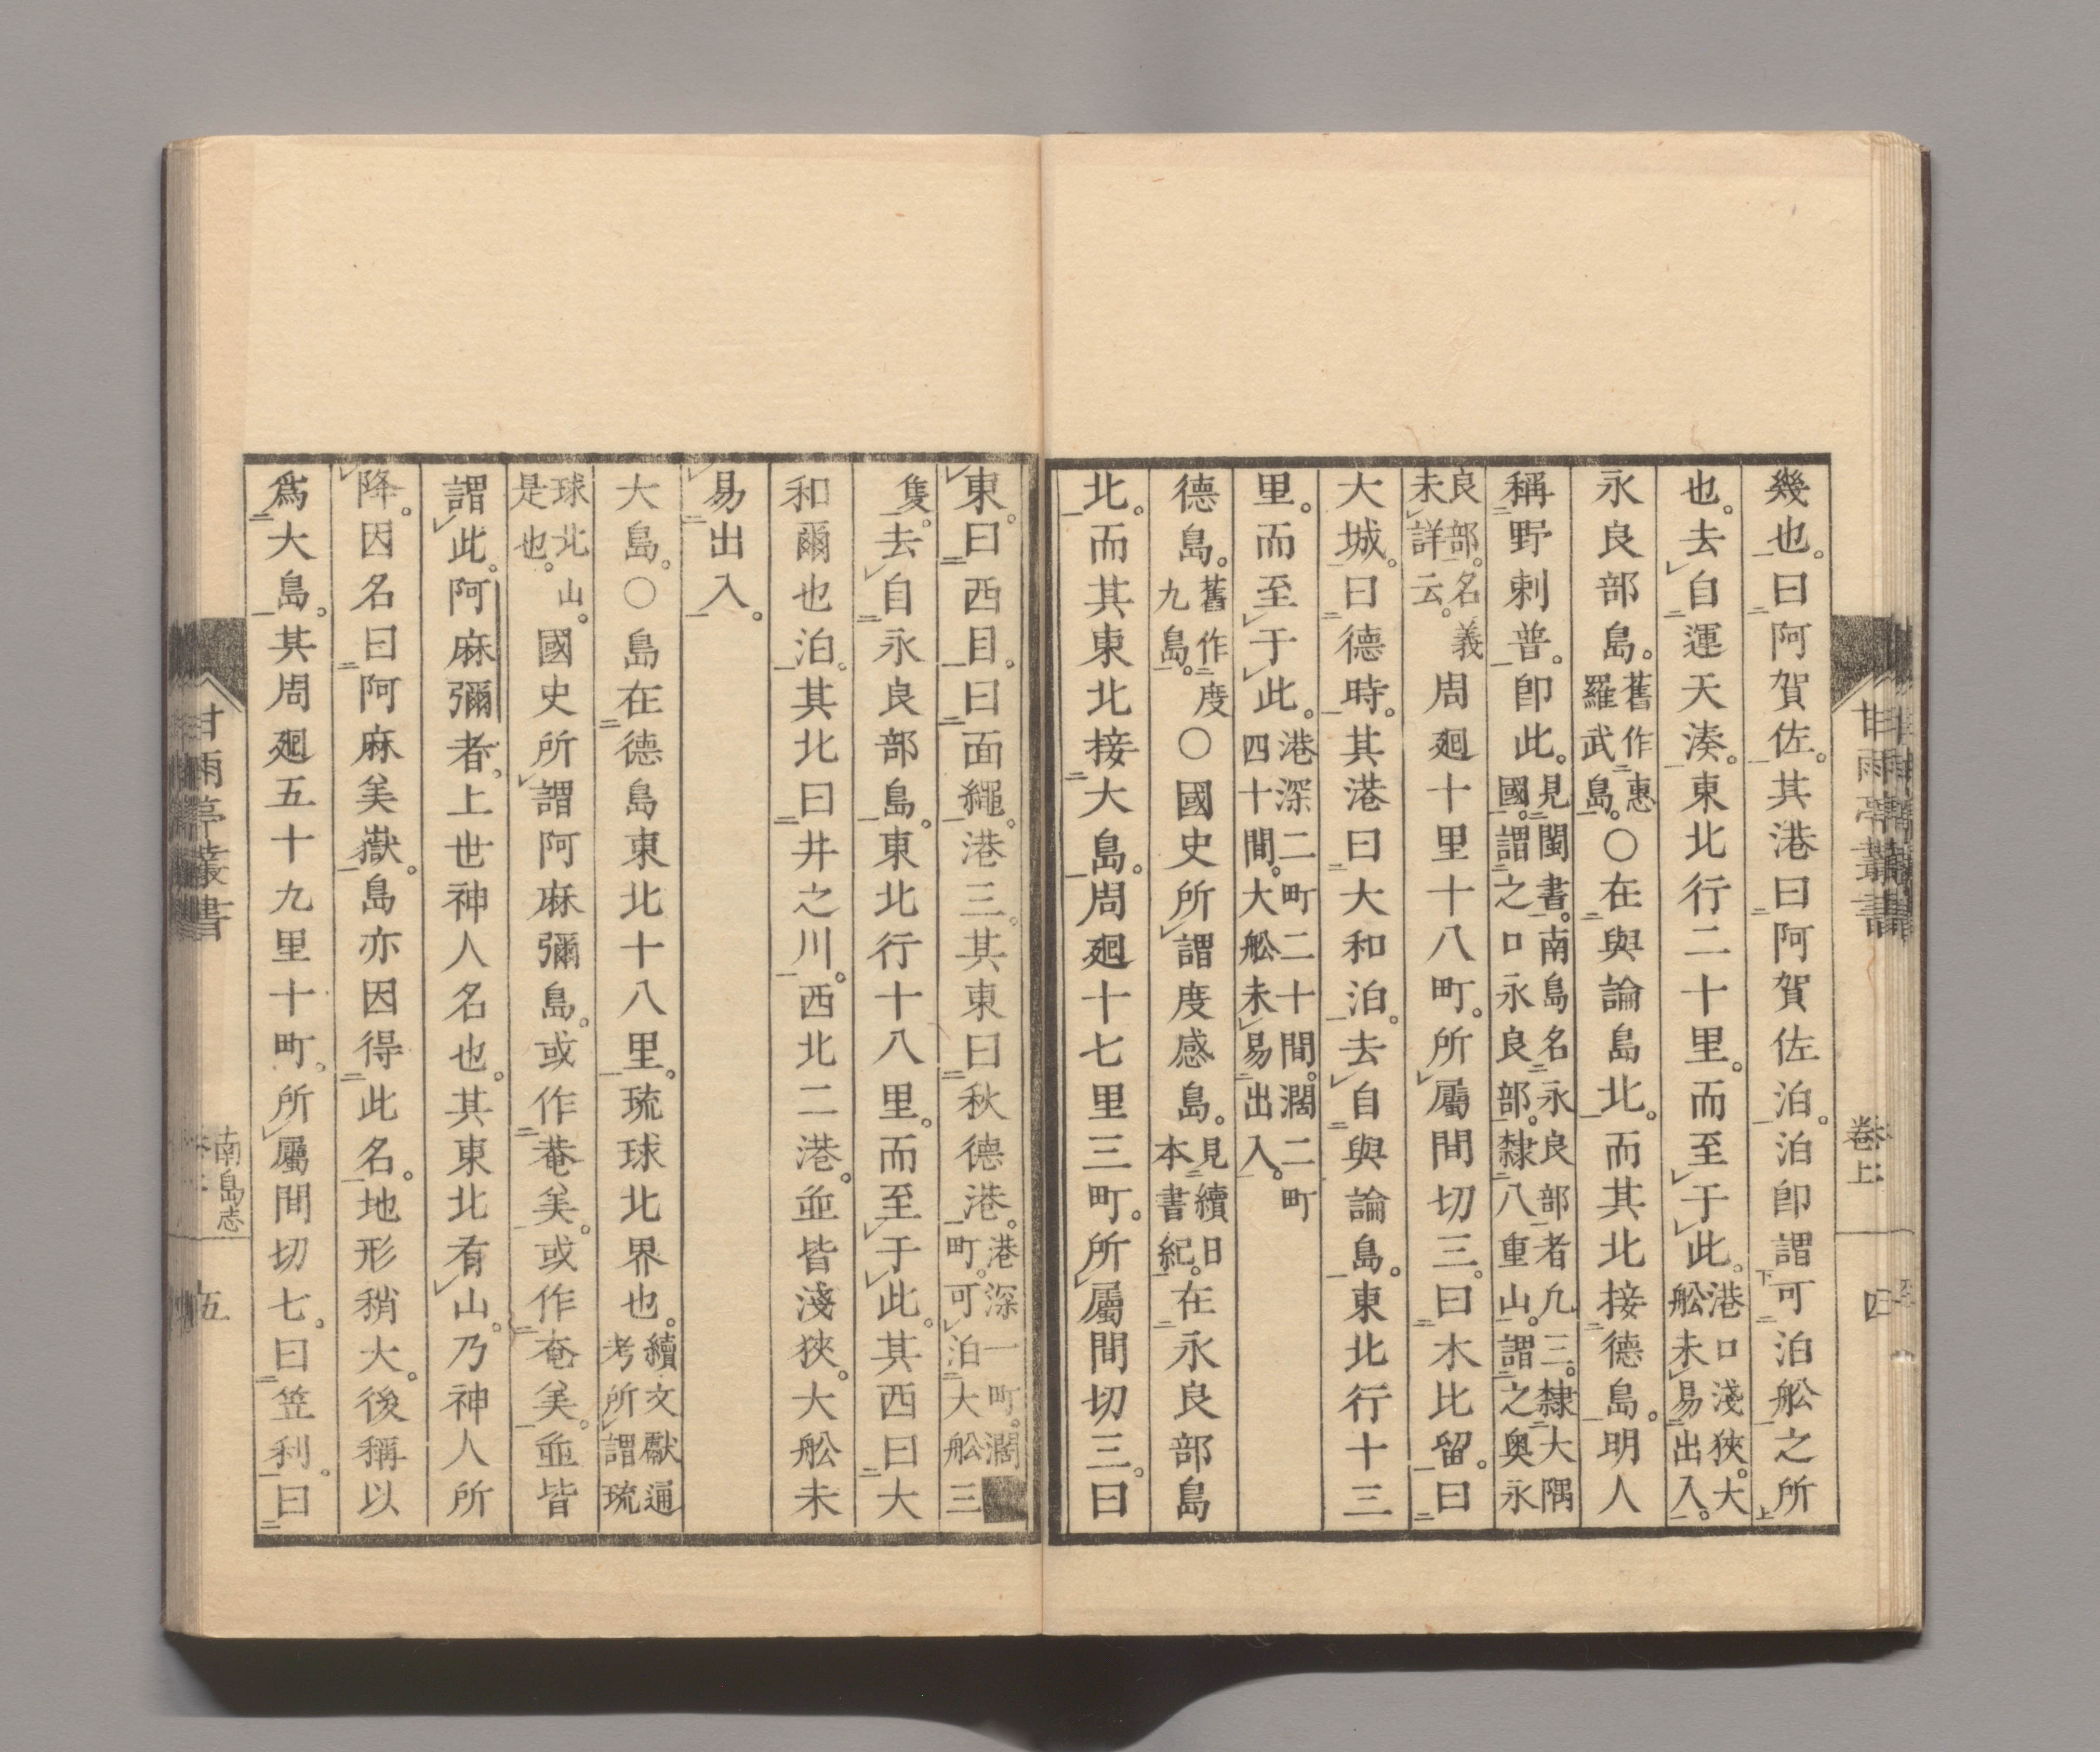 幾也。曰阿賀佐。其港曰阿賀佐泊。泊卽謂可泊舩之所
也。去自運天湊。東北行二十里。而至于此。港口淺狹。大舩未易出入。
永良部島。舊作惠羅武島。○在與論島北。而其北接德島。明人
稱野剌普。卽此。見閩書。南島名永良部者凢三。隸大隅國。謂之口永良部。隸八重山。謂之奧永
良部。名義未詳云。周廻十里十八町。所屬間切三。曰木比留。曰
大城。曰德時。其港曰大和泊。去自與論島。東北行十三
里。而至于此。港深二町二十間。濶二町四十間。大舩未易出入。
德島。舊作度九島。○國史所謂度感島。見續日本書紀。在永良部島
北。而其東北接大島。周廻十七里三町。所屬間切三。曰
東。曰西目。曰面繩。港三。其東曰秋德港。港深一町。濶町。可泊大舩三
隻。去自永良部島。東北行十八里。而至于此。其西曰大
和爾也泊。其北曰井之川。西北二港。並皆淺狹。大舩未
易出入。
大島。○島在德島東北十八里。琉球北界也。續文獻通考所謂琉
球北山。是也。國史所謂阿麻彌島。或作菴美。或作奄美。並皆
謂此。阿麻彌者、上世神人名也。其東北有山。乃神人所
降。因名曰阿麻美嶽。島亦因得此名。地形稍大。後稱以
爲大島。其周廻五十九里十町。所屬間切七。曰笠利。曰
甘雨亭叢書
卷上
四
甘雨亭叢書
南島志
五